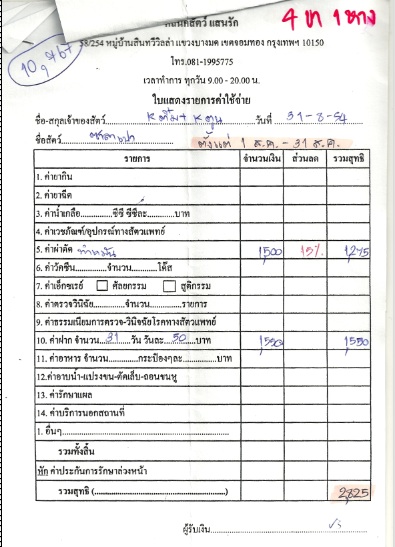 4 ขา 1 หาง
สัตว์ แสนรัก
58/254 หมู่บ้านสินทวีวิลล่า แขวงบางมด เขตจอมทอง กรุงเทพฯ 10150
โทร.081-1995775
เวลาทำการ ทุกวัน 9.00 - 20.00 น.
ใบแสดงรายการค่าใช้จ่าย
ชื่อ-สกุลเจ้าของสัตว์ วันที่ 31-8-54
ชื่อสัตว์ ตั้งแต่ 1 ส.ค. - 31 ส.ค.
รายการ จำนวนเงิน ส่วนลด รวมสุทธิ
1. ค่ายากิน
2. ค่ายาฉีด
3. ค่าน้ำเกลือ..........ซีซี ซีซีละ........บาท
4. ค่าเวชภัณฑ์/อุปกรณ์ทางสัตวแพทย์
5. ค่าผ่าตัด ทำหมัน 1,500 15% 1,275
6. ค่าวัคซีน............จำนวน............โด๊ส
7. ค่าเอ็กซเรย์ ศัลยกรรม สูติกรรม
8. ค่าตรวจวินิจฉัย...............จำนวน...............รายการ
9. ค่าธรรมเนียมการตรวจ-วินิจฉัยโรคทางสัตวแพทย์
10. ค่าฝาก จำนวน 31 วัน วันละ 50 บาท 1,550 1,550
11. ค่าอาหาร จำนวน............กระป๋องๆละ............บาท
12.ค่าอาบน้ำ-แปรงขน-ตัดเล็บ-ถอนขนหู
13. ค่ารักษาแผล
14. ค่าบริการนอกสถานที่
1. อื่นๆ
รวมทั้งสิ้น
หัก ค่าประกันการรักษาล่วงหน้า
รวมสุทธิ (..........................................) 2,825
ผู้รับเงิน